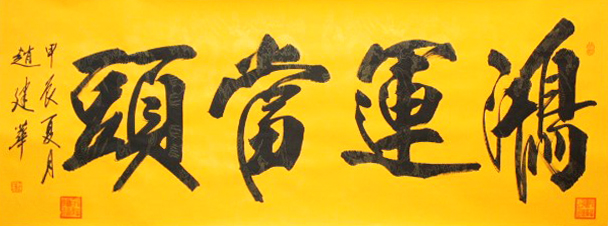 鴻運當頭
甲辰夏月
趙建華